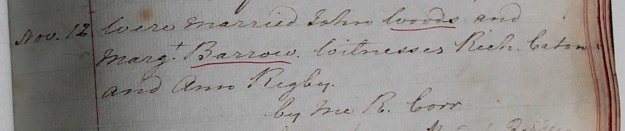 Nov. 12 Were married John Woods and
Margt Barrow. Witnesses Rich. Eaton
and Ann Rigby.
by me R. Corr